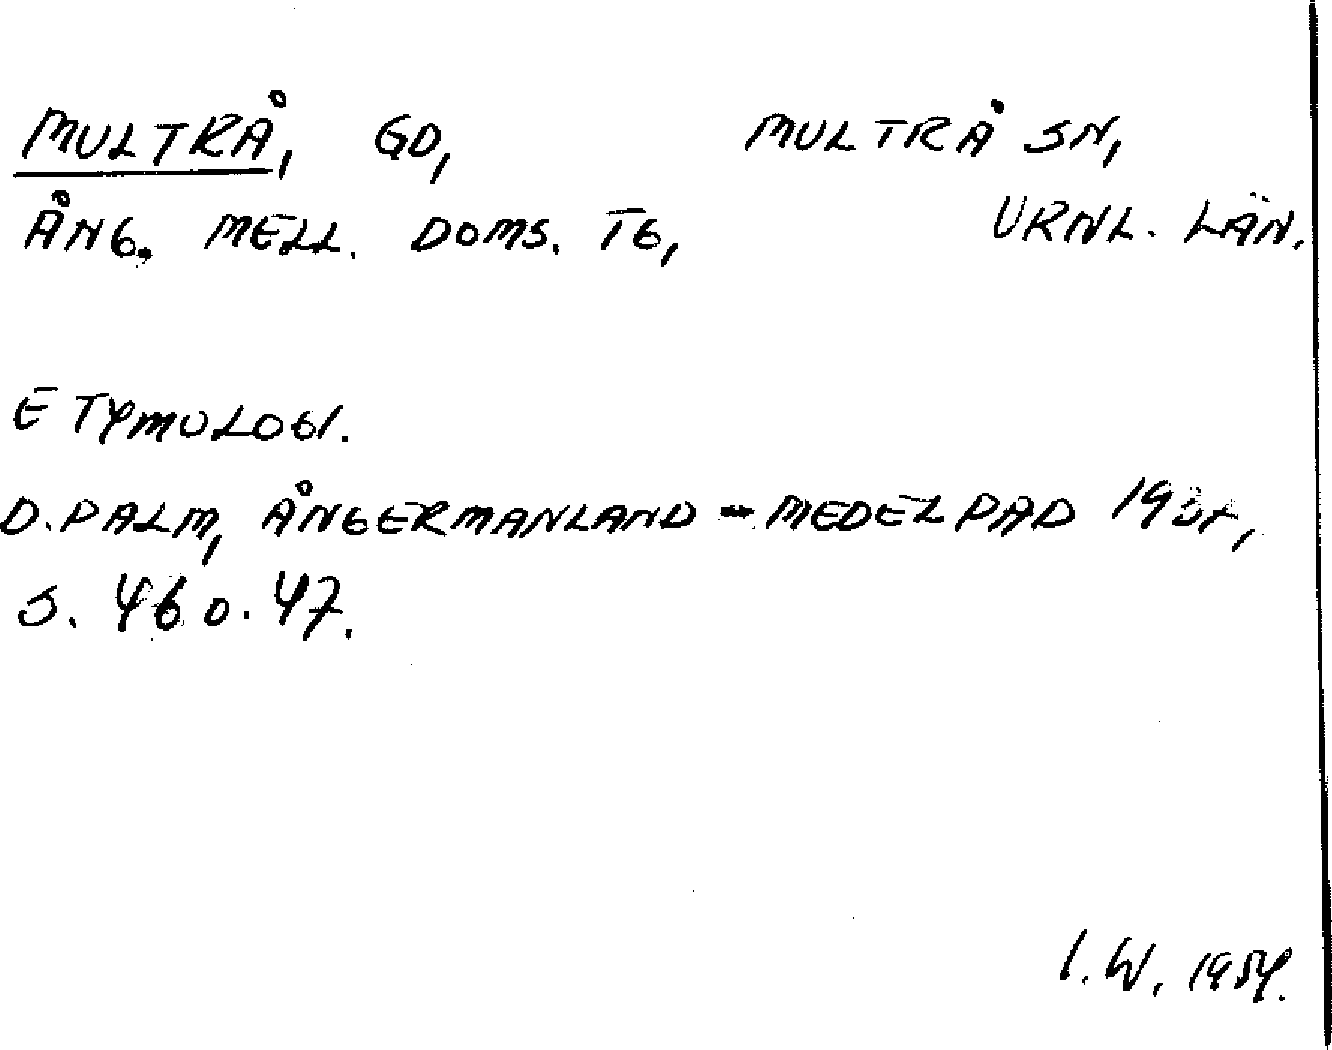 MULTRÅ, GD, MULTRÅ SN,
ÅNG. MELL. DOMS. TG, VRNL. LÄN.
ETYMOLOGI.
D. PALM, ÅNGERMANLAND - MEDELPAD
S. 46 o. 47.
I. W. 1954.